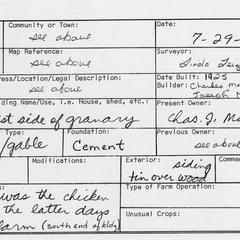 Community or Town: Date:
see above 7-29-
Map Reference: Surveyor:
see above Linda
ess/Location/Legal Description: Date Built: 1925
see above Builder: Charles
Joseph
ding Name/Use, i.e. House, shed, etc.: Present Owner:
st side of granary Chas. J. Ma
Foundation: Previous Owner
/gable Cement see abov
Modifications: Exterior: siding
tin over wood
Type of Farm Operation:
was the chicken
the latter days
farm (south end of bldg) Unusual Crops: